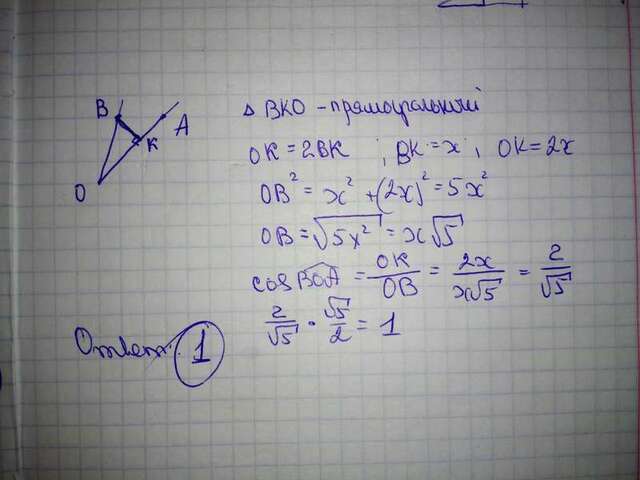 B
A
K
O
Δ BKO - прямоугольный
OK = 2BK ; BK = x ; OK = 2x
OB² = x² + (2x)² = 5x²
OB = √5x² = x√5
cos BOA = OK/OB = 2x/x√5 = 2/√5
2/√5 · √5/2 = 1
Ответ: 1